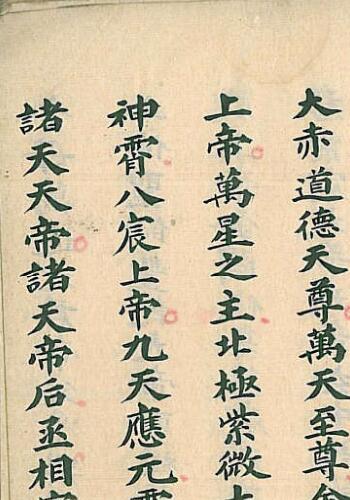 大赤道德天尊萬天至尊
上帝萬星之主北極紫微
神霄八宸上帝九天應元
諸天天帝諸天帝后丞相